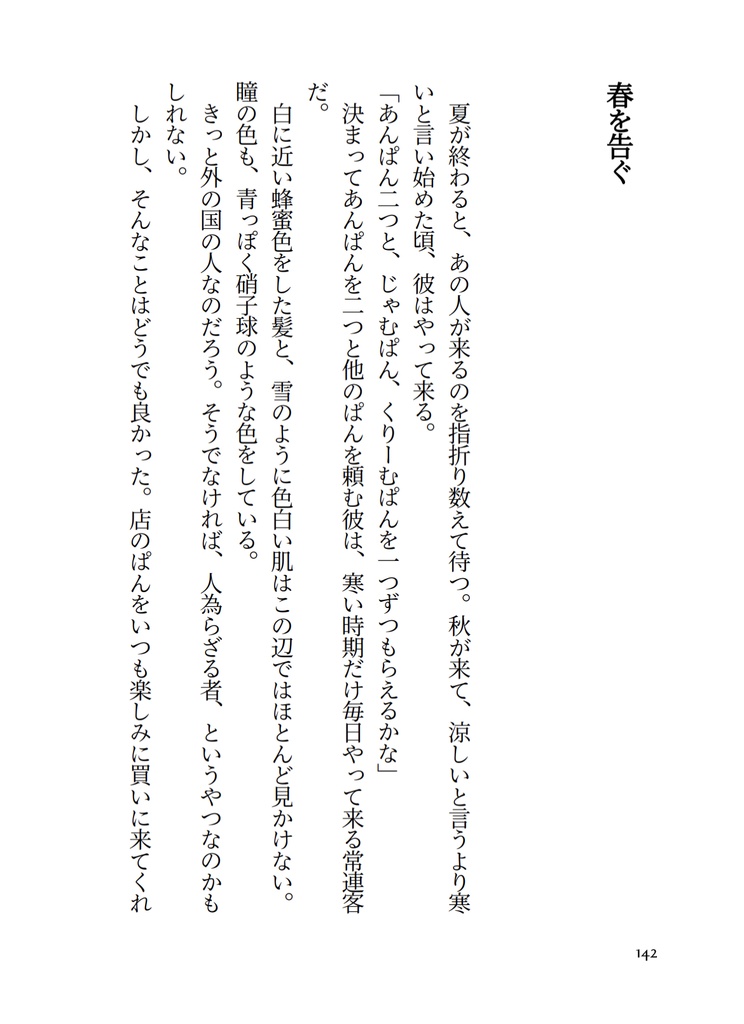 春を告ぐ
　夏が終わると、あの人が来るのを指折り数えて待つ。秋が来て、涼しいと言うより寒
いと言い始めた頃、彼はやって来る。
「あんぱん二つと、じゃむぱん、くりーむぱんを一つずつもらえるかな」
　決まってあんぱんを二つと他のぱんを頼む彼は、寒い時期だけ毎日やって来る常連客
だ。
　白に近い蜂蜜色をした髪と、雪のように色白い肌はこの辺ではほとんど見かけない。
瞳の色も、青っぽく硝子球のような色をしている。
　きっと外の国の人なのだろう。そうでなければ、人為らざる者、というやつなのかも
しれない。
　しかし、そんなことはどうでも良かった。店のぱんをいつも楽しみに買いに来てくれ
142